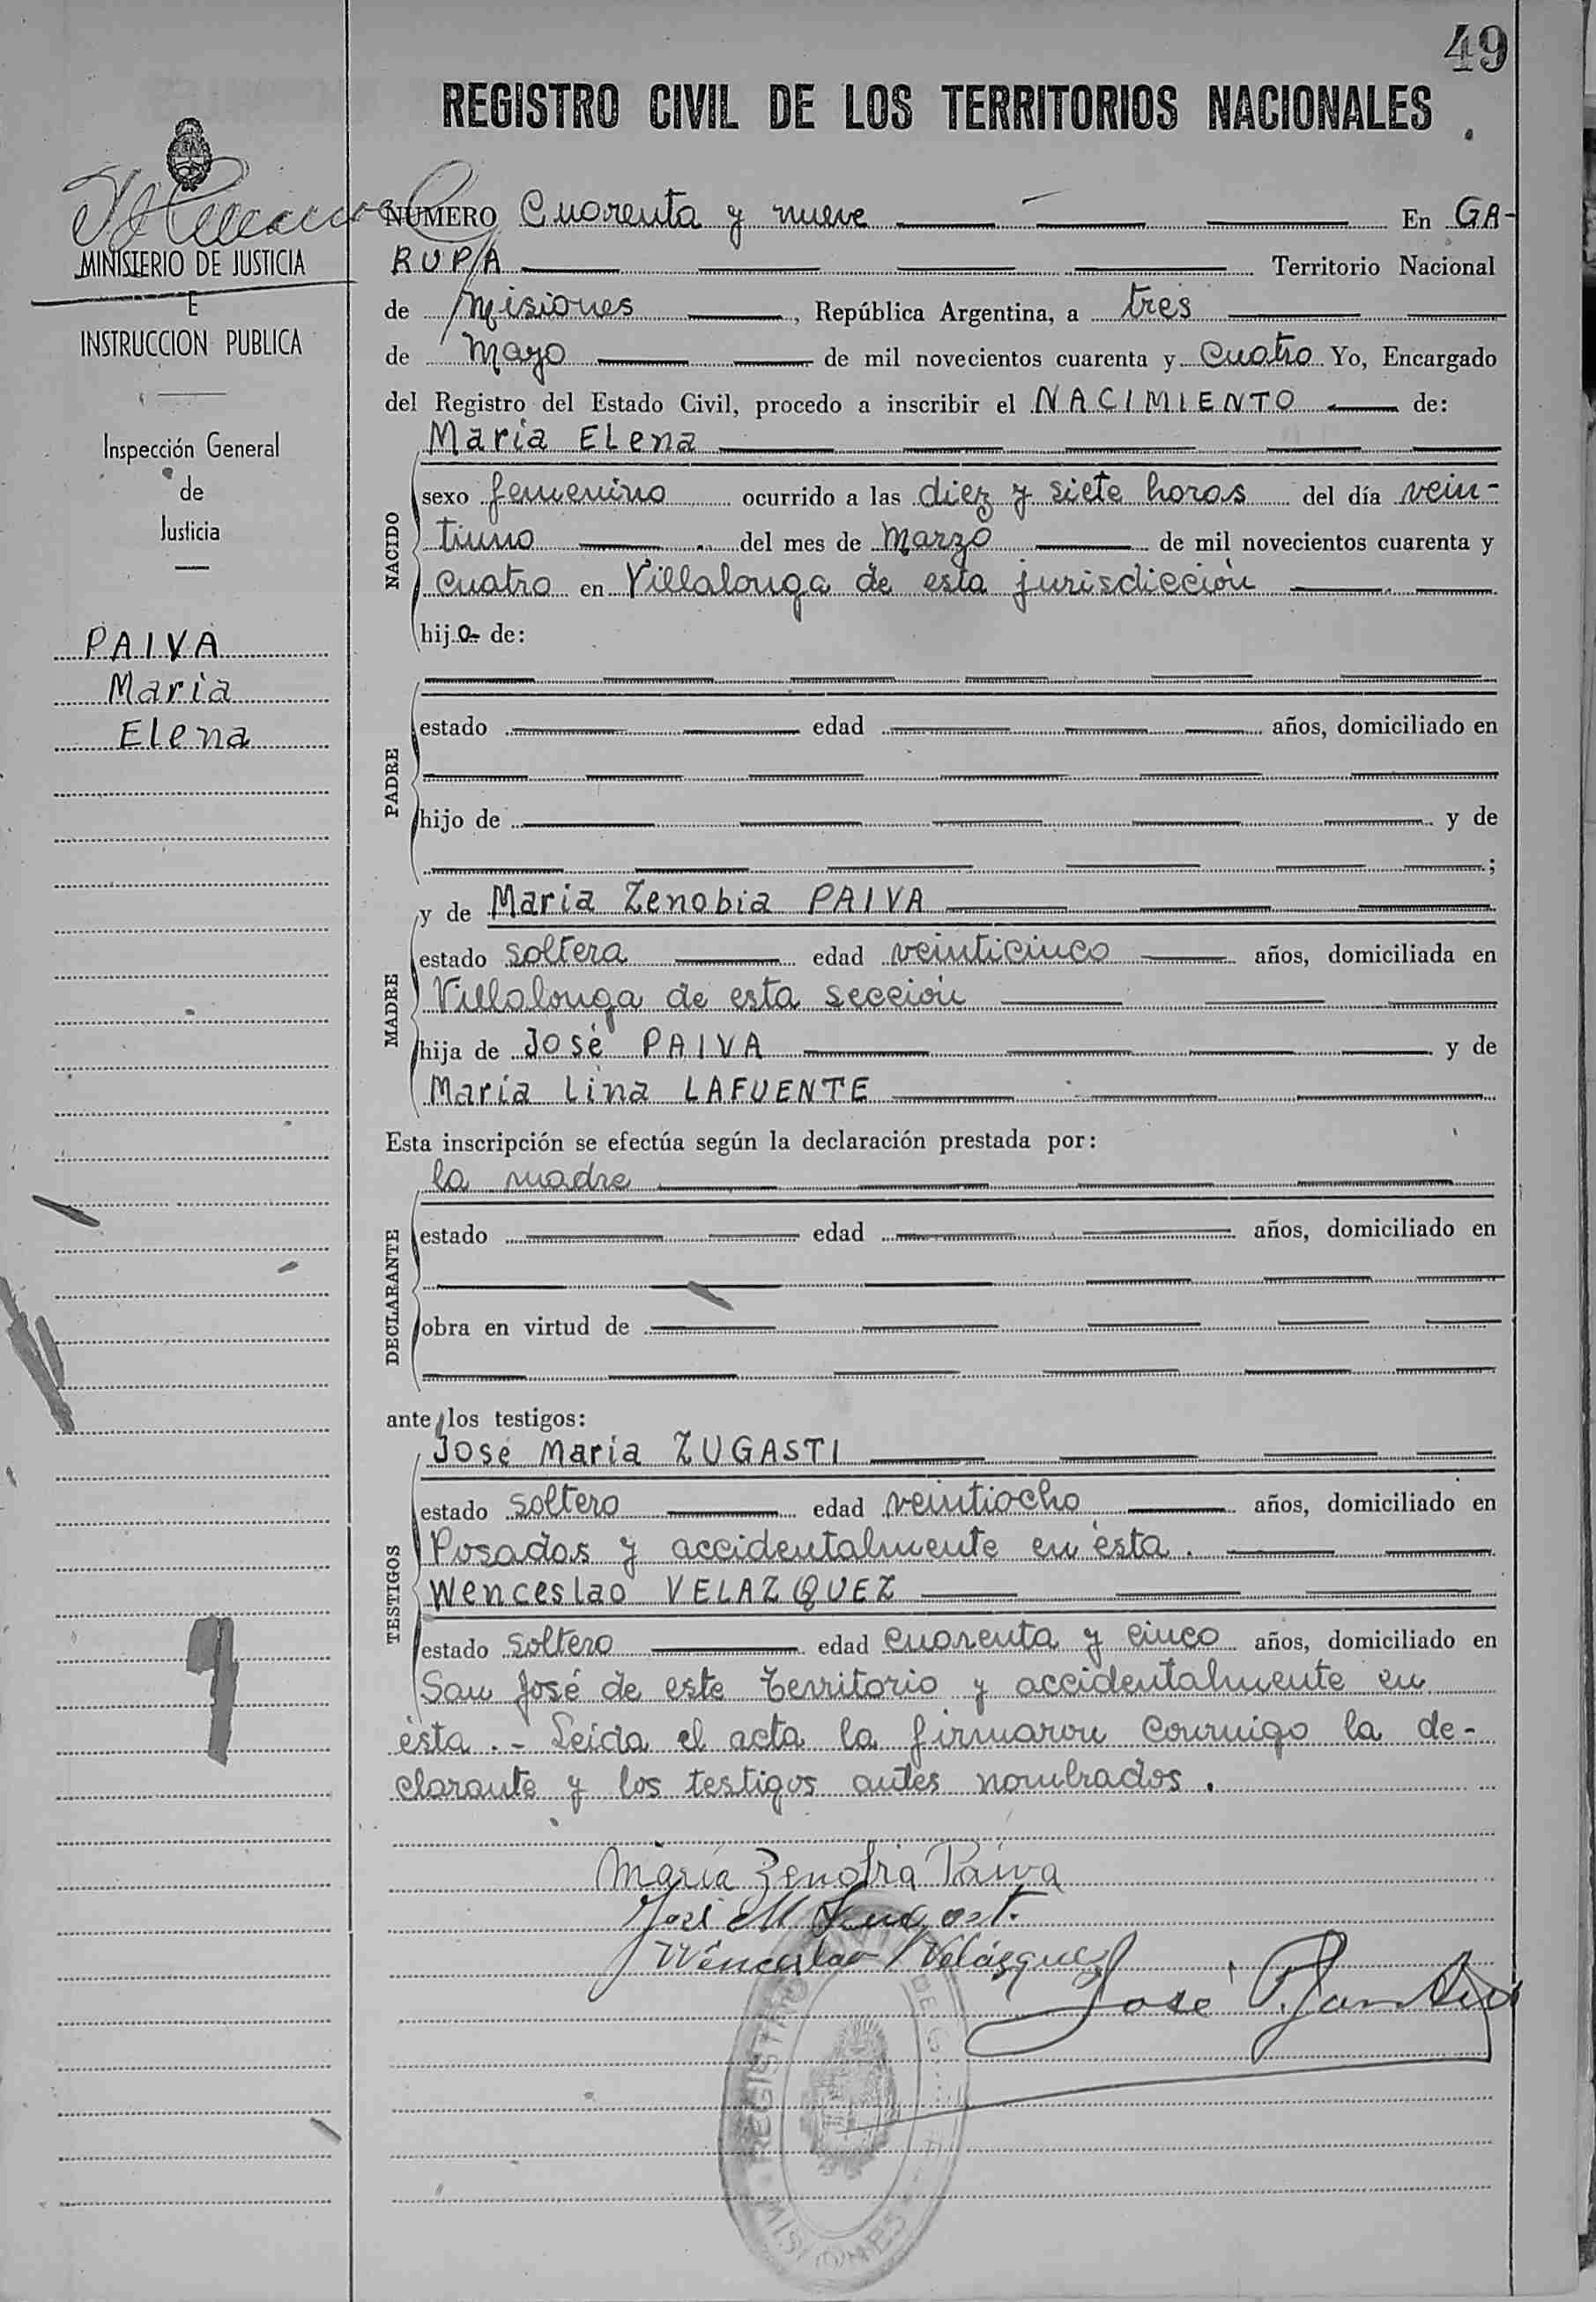 49
REGISTRO CIVIL DE LOS TERRITORIOS NACIONALES
MINISTERIO DE JUSTICIA
E
INSTRUCCION PUBLICA
Inspección General
de
Justicia
PAIVA
Maria
Elena
NUMERO Cuarenta y nueve En GA-
RUPA Territorio Nacional
de Misiones, República Argentina, a tres
de Mayo de mil novecientos cuarenta y cuatro Yo, Encargado
del Registro del Estado Civil, procedo a inscribir el NACIMIENTO de:
Maria ELena
NACIDO
sexo femenino ocurrido a las diez y siete horas del día vein-
tiuno del mes de Marzo de mil novecientos cuarenta y
cuatro en Villalonga de esta jurisdicción
hija de:
PADRE
estado edad años, domiciliado en
hijo de y de
;
MADRE
y de Maria Zenobia PAIVA
estado soltera edad veinticinco años, domiciliada en
Villalonga de esta sección
hija de José PAIVA y de
María Lina LAFUENTE
Esta inscripción se efectúa según la declaración prestada por:
la madre
DECLARANTE
estado edad años, domiciliado en
obra en virtud de
ante los testigos:
TESTIGOS
José Maria ZUGASTI
estado soltero edad veintiocho años, domiciliado en
Posadas y accidentalmente en ésta.
Wenceslao VELAZQUEZ
estado soltero edad cuarenta y cinco años, domiciliado en
San José de este territorio y accidentalmente en
ésta.- Leída el acta la firmaron conmigo la de-
clarante y los testigos antes nombrados.
María Zenobia Paiva
José M
Wenceslao Velásquez
José
REGISTRO CIVIL DE
MISIONES